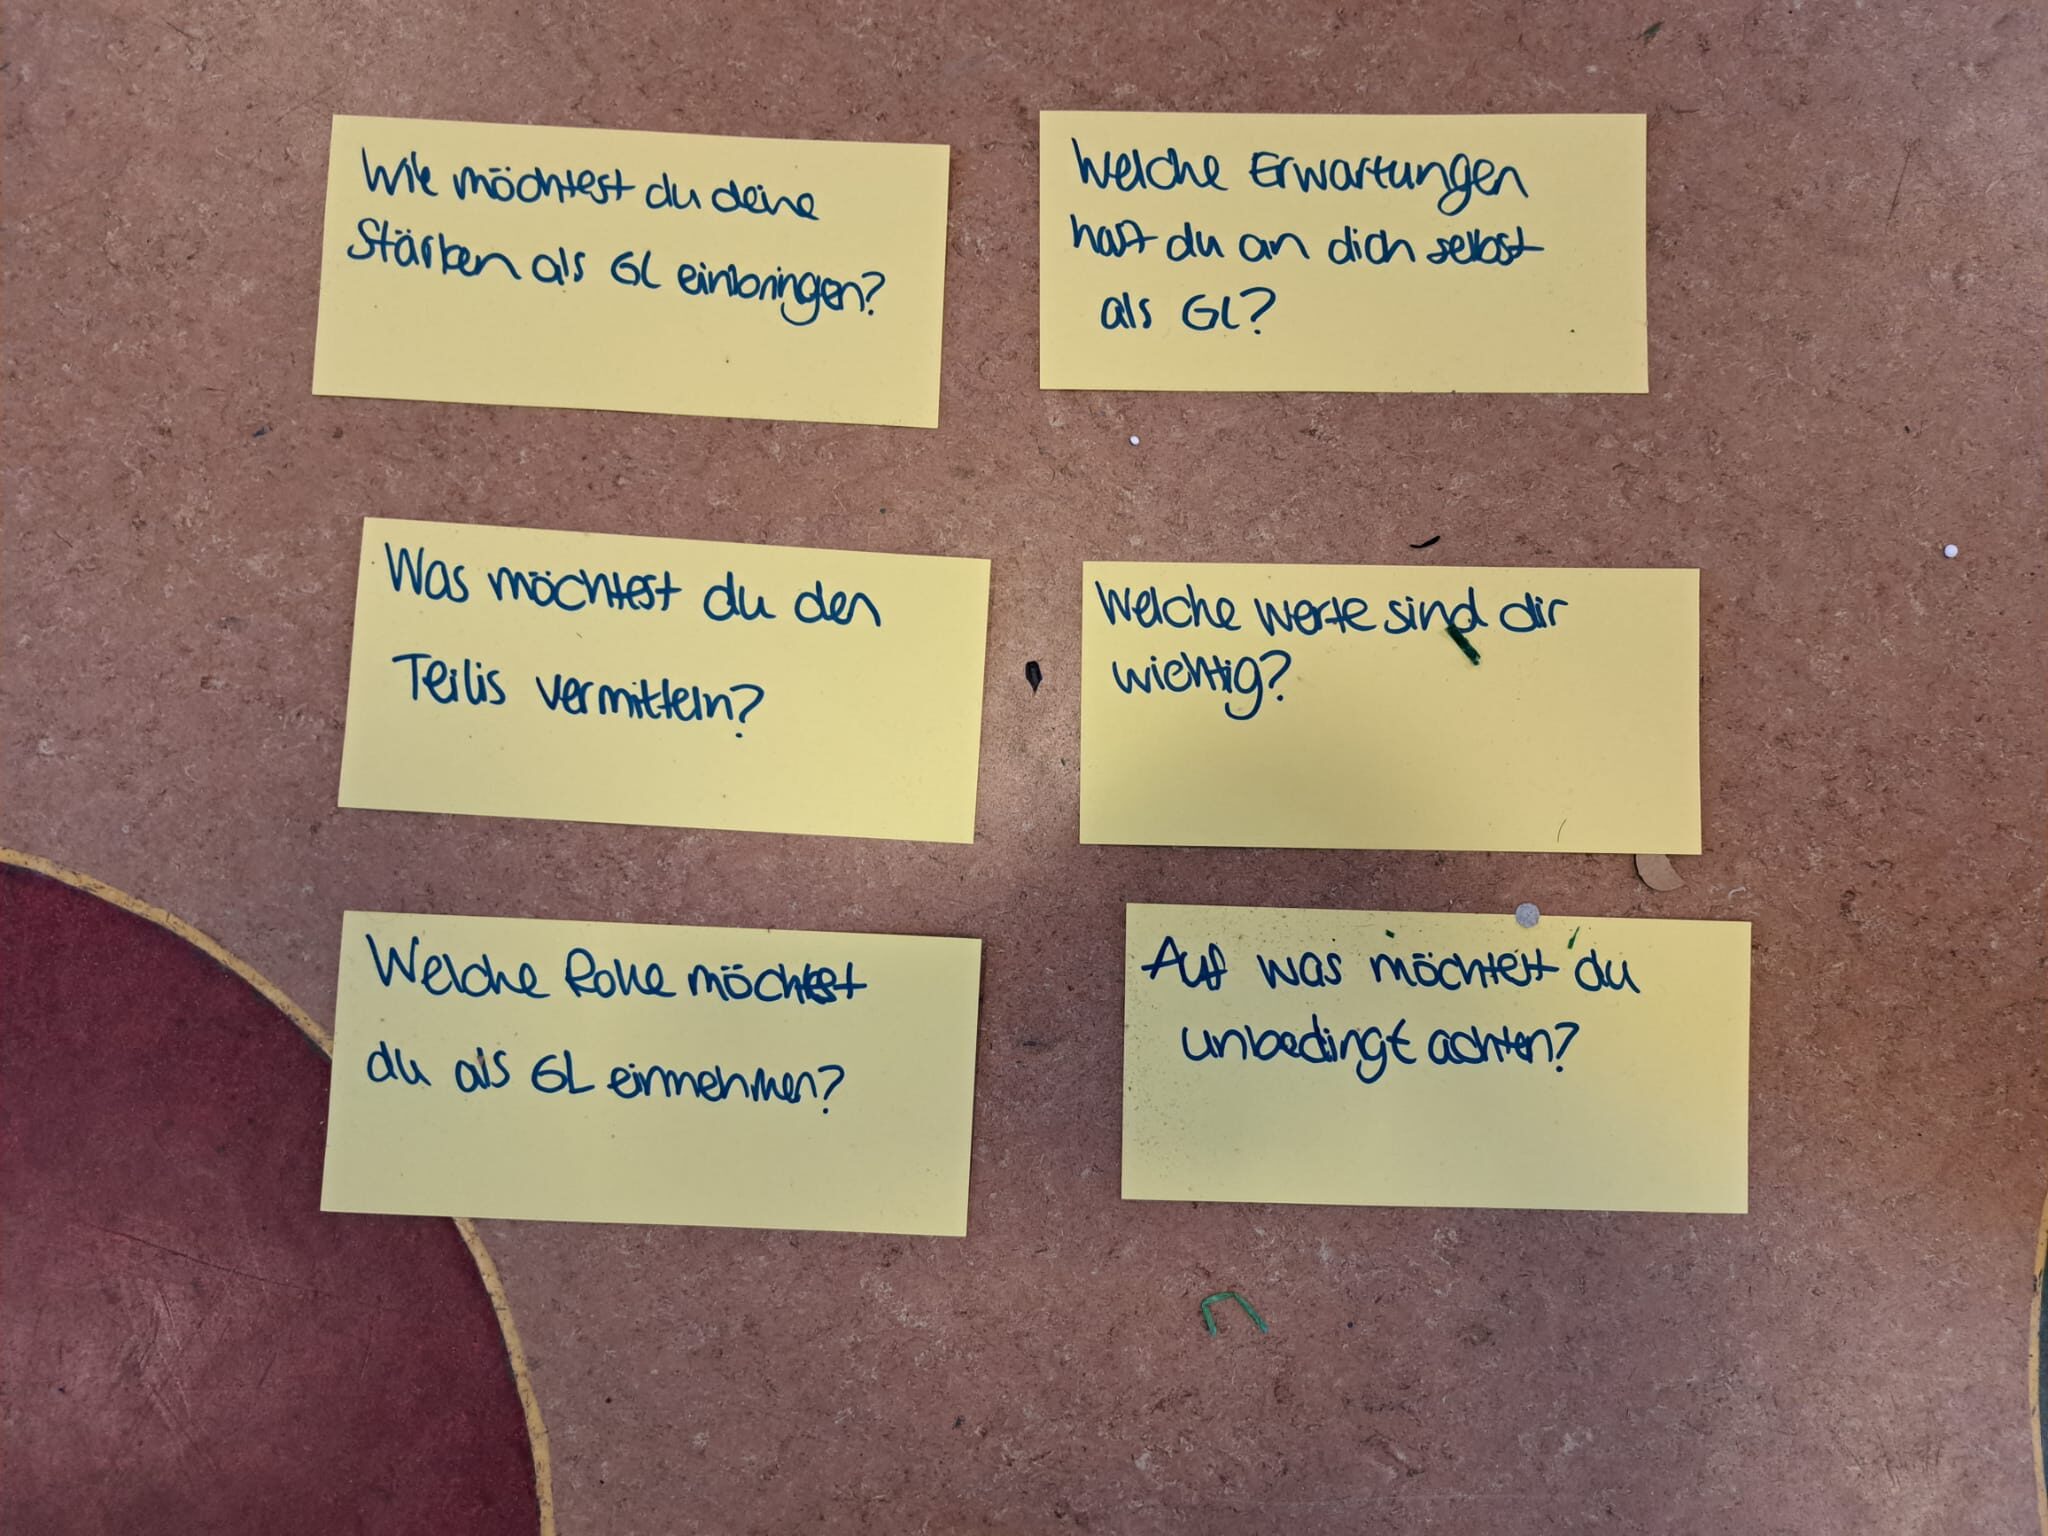 Wie möchtest du deine
Stärken als GL einbringen?
Welche Erwartungen
hast du an dich selbst
als GL?
Was möchtest du den
Teilis vermitteln?
Welche Werte sind dir
wichtig?
Welche Rolle möchtest
du als GL einnehmen?
Auf was möchtest du
unbedingt achten?